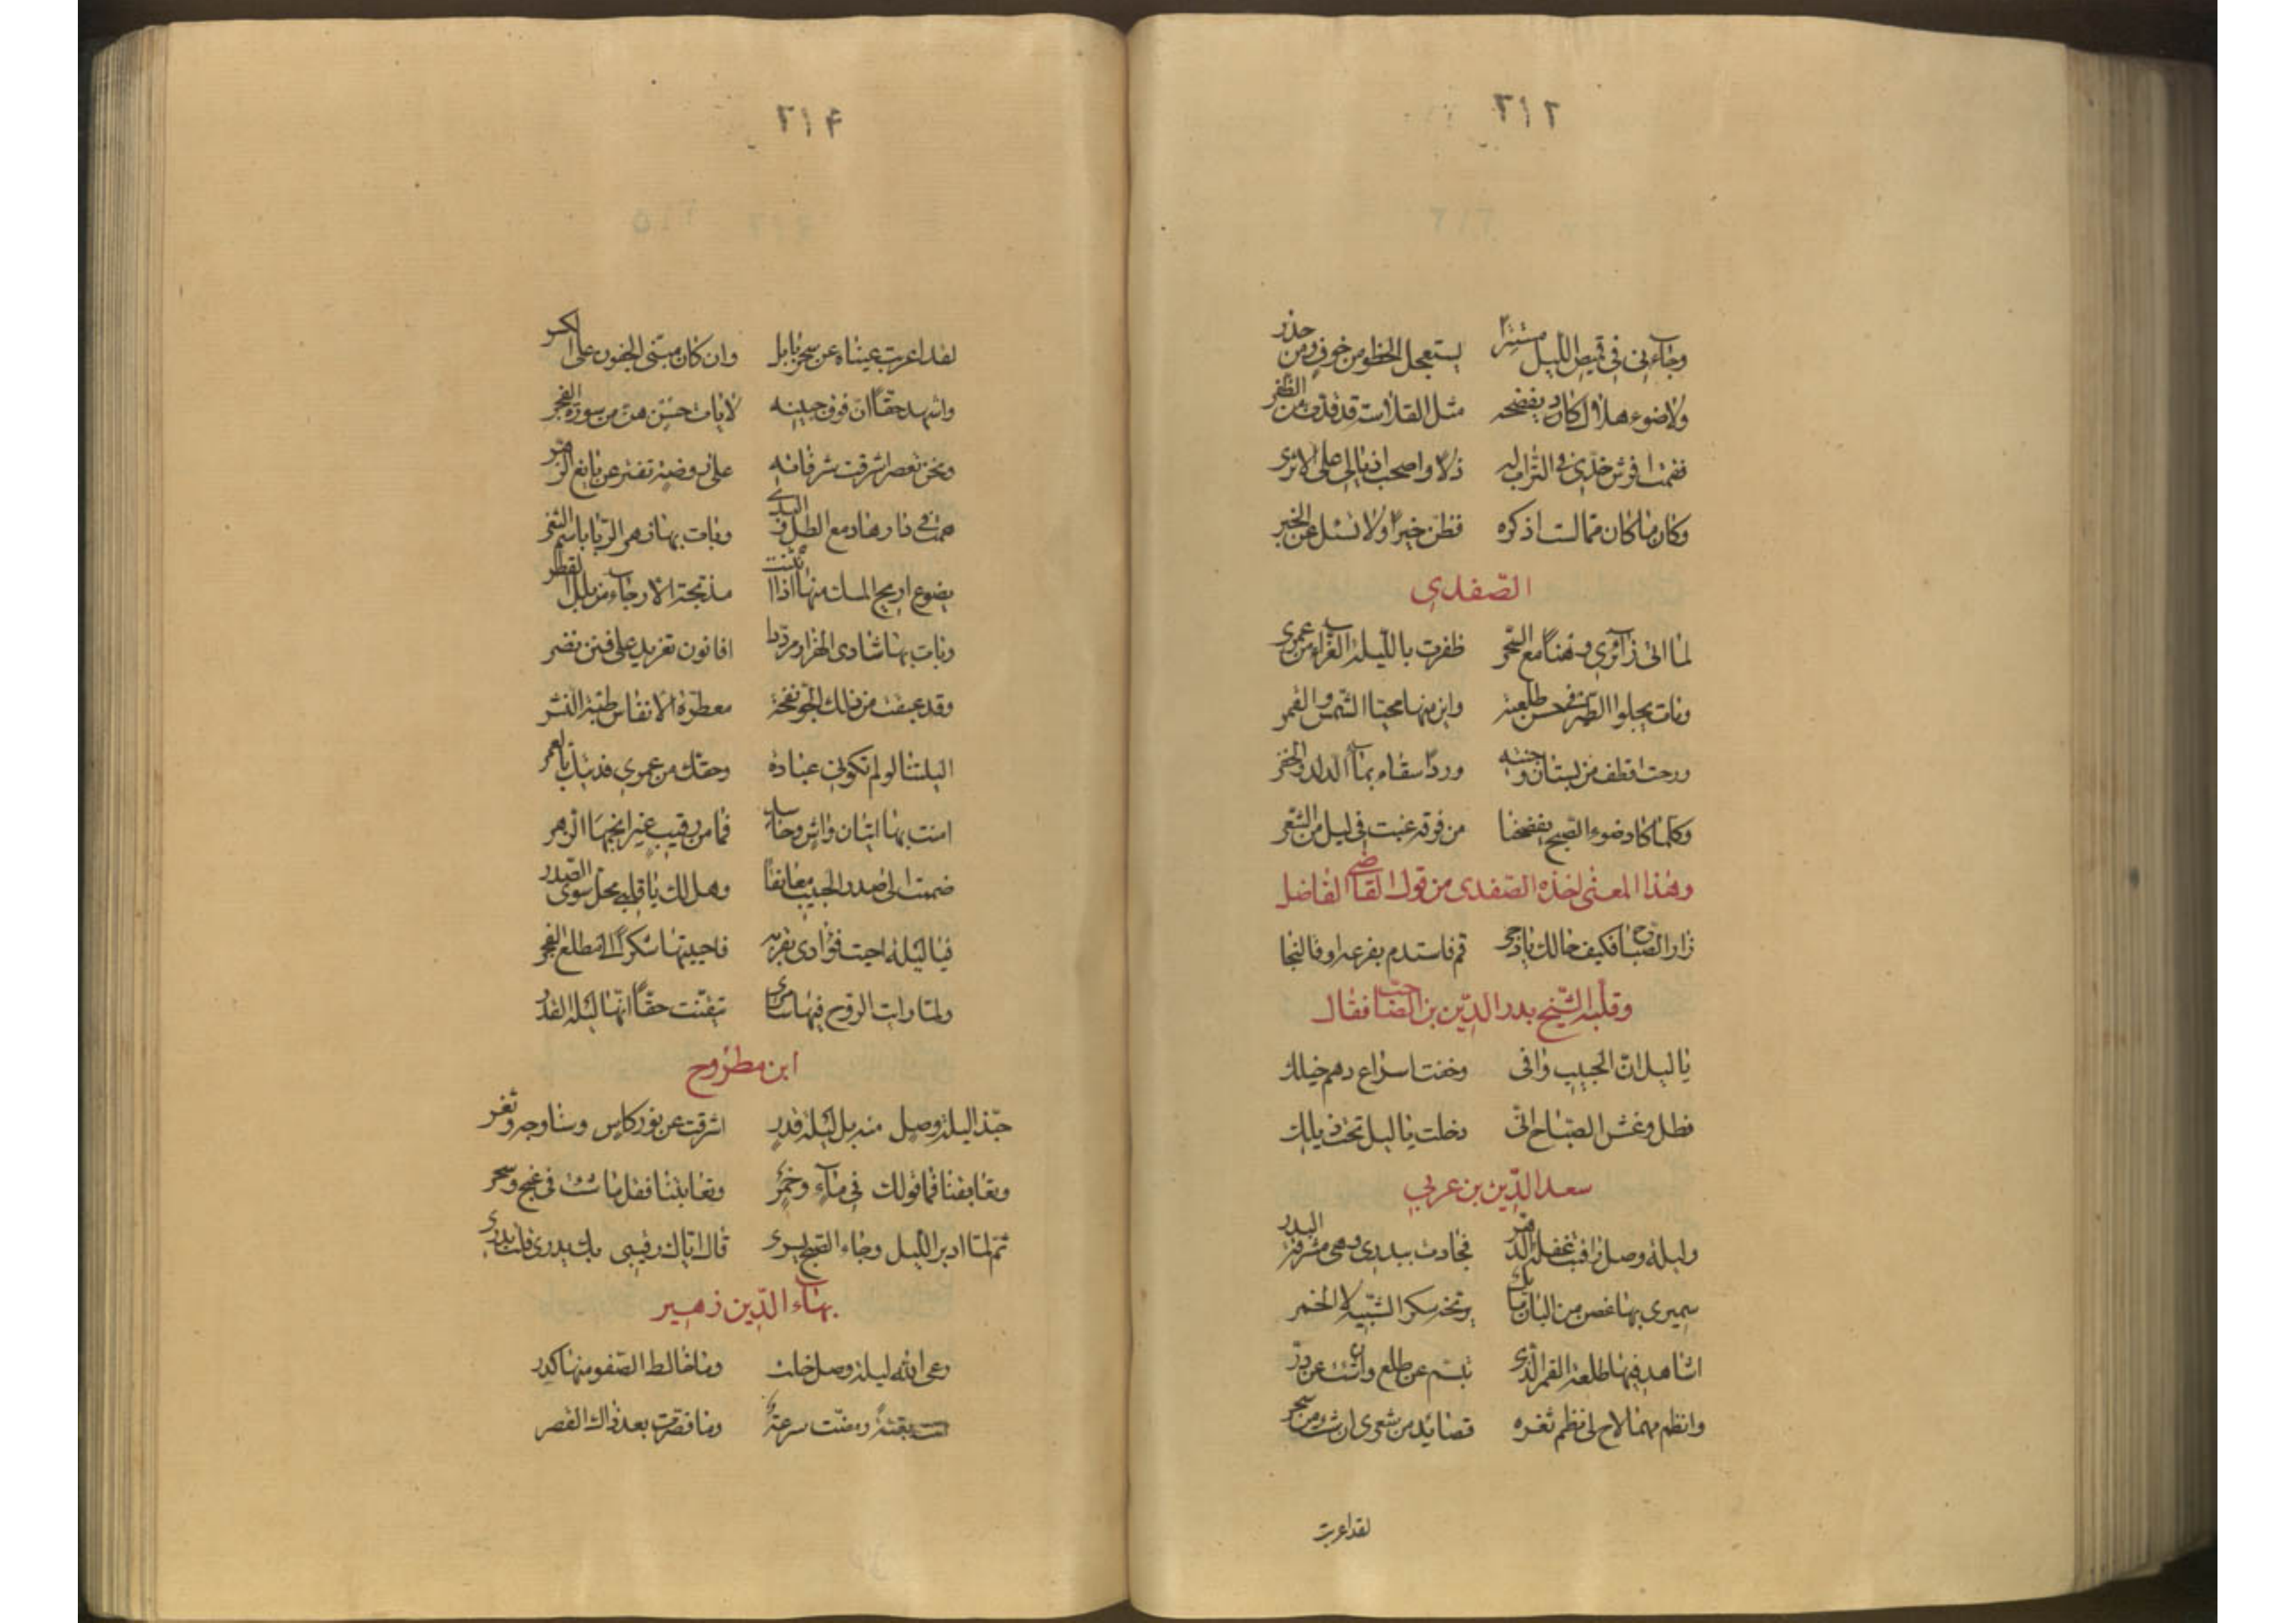 ٢١٢
وجاءني في قميص الليل مستترا يستعجل الخطو من خوف ومن حذر
ولاضوء هلال كاد يفضحه مثل القلامة قد قدت من الظفر
فقمت افرش خدي في التراب له ذلا واصحب اذيالي على الاثر
وكان ما كان مما لست اذكره فظن خيرا ولا تسئل عن الخبر
الصّفدي
لما اتى زائري وهنا مع السّحر ظفرت بالليلة الغراء من عمري
وبات يجلوا الطرف في حسن طلعته واين منها محيّا الشمس والقمر
ورحت اقطف من بستان وجنته وردا سقاه بماء الدل والخفر
وكلما كاد ضوء الصبح يفضحنا من فوقه غبت في ليل من الشعر
وهذا المعنى اخذه الصّفدى من قول القاضي الفاضل
زار الصباح فكيف حالك يا دجى قم فاستدم بفرعه او فالنجا
وقلبه الشّيخ بدر الدّين بن الصّاحب فقال
يا ليل انّ الحبيب وافى وخفت اسراع دهم خيلك
فطل وغش الصّباح انّي دخلت يا ليل تحت ذيلك
سعد الدّين بن عربي
وليلة وصل راقبت غفلة الدّهر فجادت ببدري وهي مشرقة البدر
سميري بها غصن من البان مايل يرنحه سكر الشبيبة لا الخمر
اشاهد فيها طلعة القمر الذي تبسّم عن طلع وان شئت عن درّ
وانظم مهما لاح لي نظم ثغره قصائد من شعري ان شئت من سحر
لقد اعربت
٢١٤
لقد اعربت عيناه عن سحر بابل وان كان مبنى الجفون على الكسر
واشهد حقّا ان فوق جبينه لايات حسن هنّ من سورة الفجر
ونحن بقصر اشرقت شرفاته على روضة تفتر عن يانع الزهر
همت في ذارها ادمع الطل في الندى وبات بها زهر الربا باسم الثغر
يضوع اريج المسك منها اذا انثنت مدبجة الارجاء من بلل القطر
وبات بها شادى الهزار مرددا افانون تغريد على فنن نضر
وقد عبقت من ذلك الجو نفحة معطرة الانفاس طيّبة النشر
اليلتنا لو لم تكوني عبادة وحقّك من عمري فديناك بالعمر
امنت بها اتيان واش وحاسد فما من رقيب غير انجمها الزهر
ضممت الى صدر الحبيب معانقا وهل لك يا قلبي محل سوى الصّدر
فيا ليلة احيت فؤادى بقربه فاحييتها سكرا الى مطلع الفجر
ولمّا رايت الرّوح فيها مسامرى تيقّنت حقّا انّها ليلة القدر
ابن مطروح
حبّذا ليلة وصل منه بل ليلة قدر اشرقت عن نور كاس وسنا وجه وثغر
وتعانقنا فما قولك في ماء وخمر وتعاتبنا فقل ما شئت في غنج وسحر
ثمّ لمّا ادبر الليل وجاء الصّبح يسرى قال ايّاك رقيبى بك يدرى قلت يدري
بهاء الدّين زهير
رعى الله ليلة وصل خلت وما خالط الصّفو منها كدر
اتت بغتة ومضت سرعة وما قصّرت بعد ذاك القصر